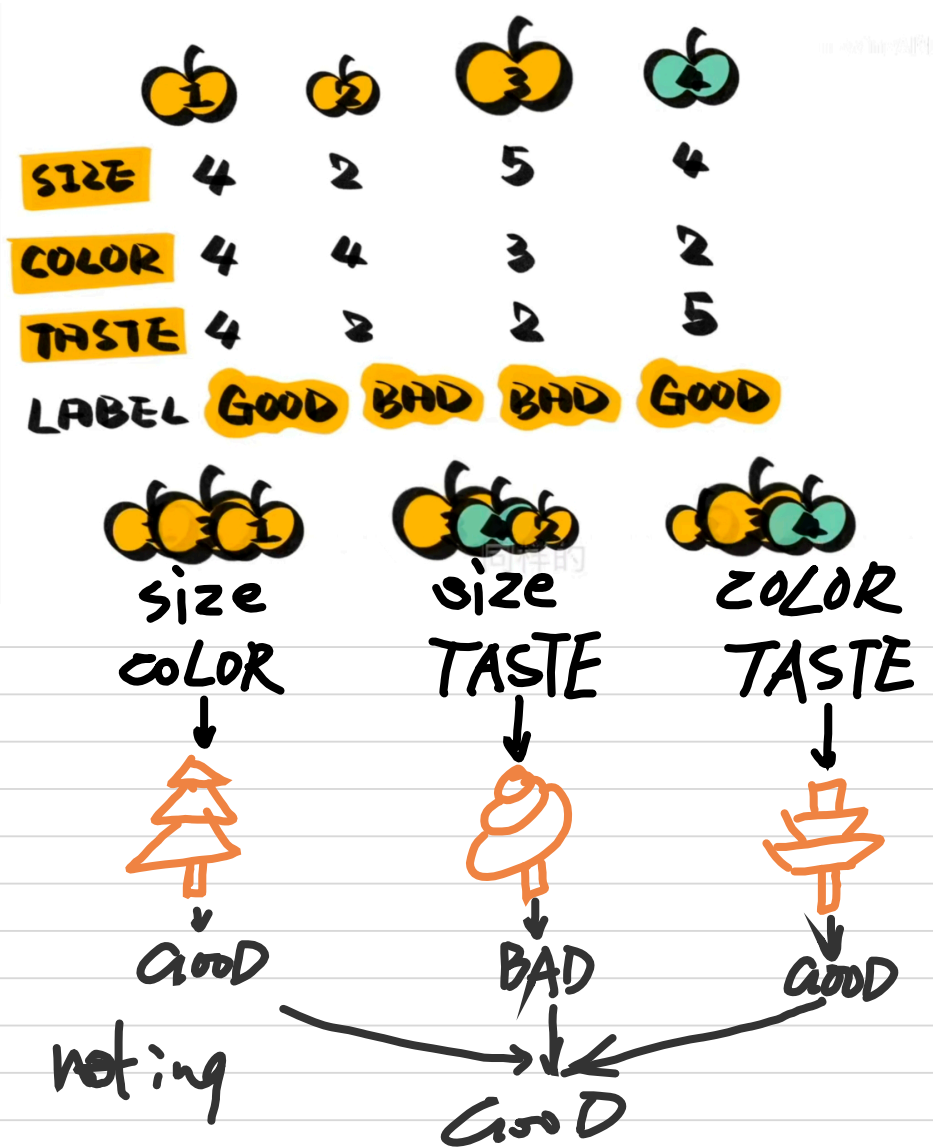 1 2 3 4
SIZE 4 2 5 4
COLOR 4 4 3 2
TASTE 4 2 2 5
LABEL GOOD BAD BAD GOOD
1 4 2 4
同样的
size size COLOR
COLOR TASTE TASTE
GOOD BAD GOOD
noting
GOOD